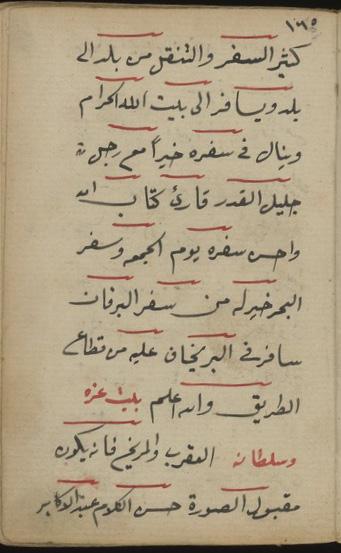 ١٦٥
كثير السفر والتنقل من بلد الى
بلد ويسافر الى بيت الله الحرام
وينال في سفره خيراً مع رجل
جليل القدر قارئ كتاب الله
واحسن سفره يوم الجمعه وسفر
البحر خير له من سفر البر فان
سافر في البر يخاف عليه من قطاع
الطريق والله اعلم بيت عزه
وسلطانه العقرب والمريخ فانه يكون
مقبول الصورة حسن الكلام عند الاكابر